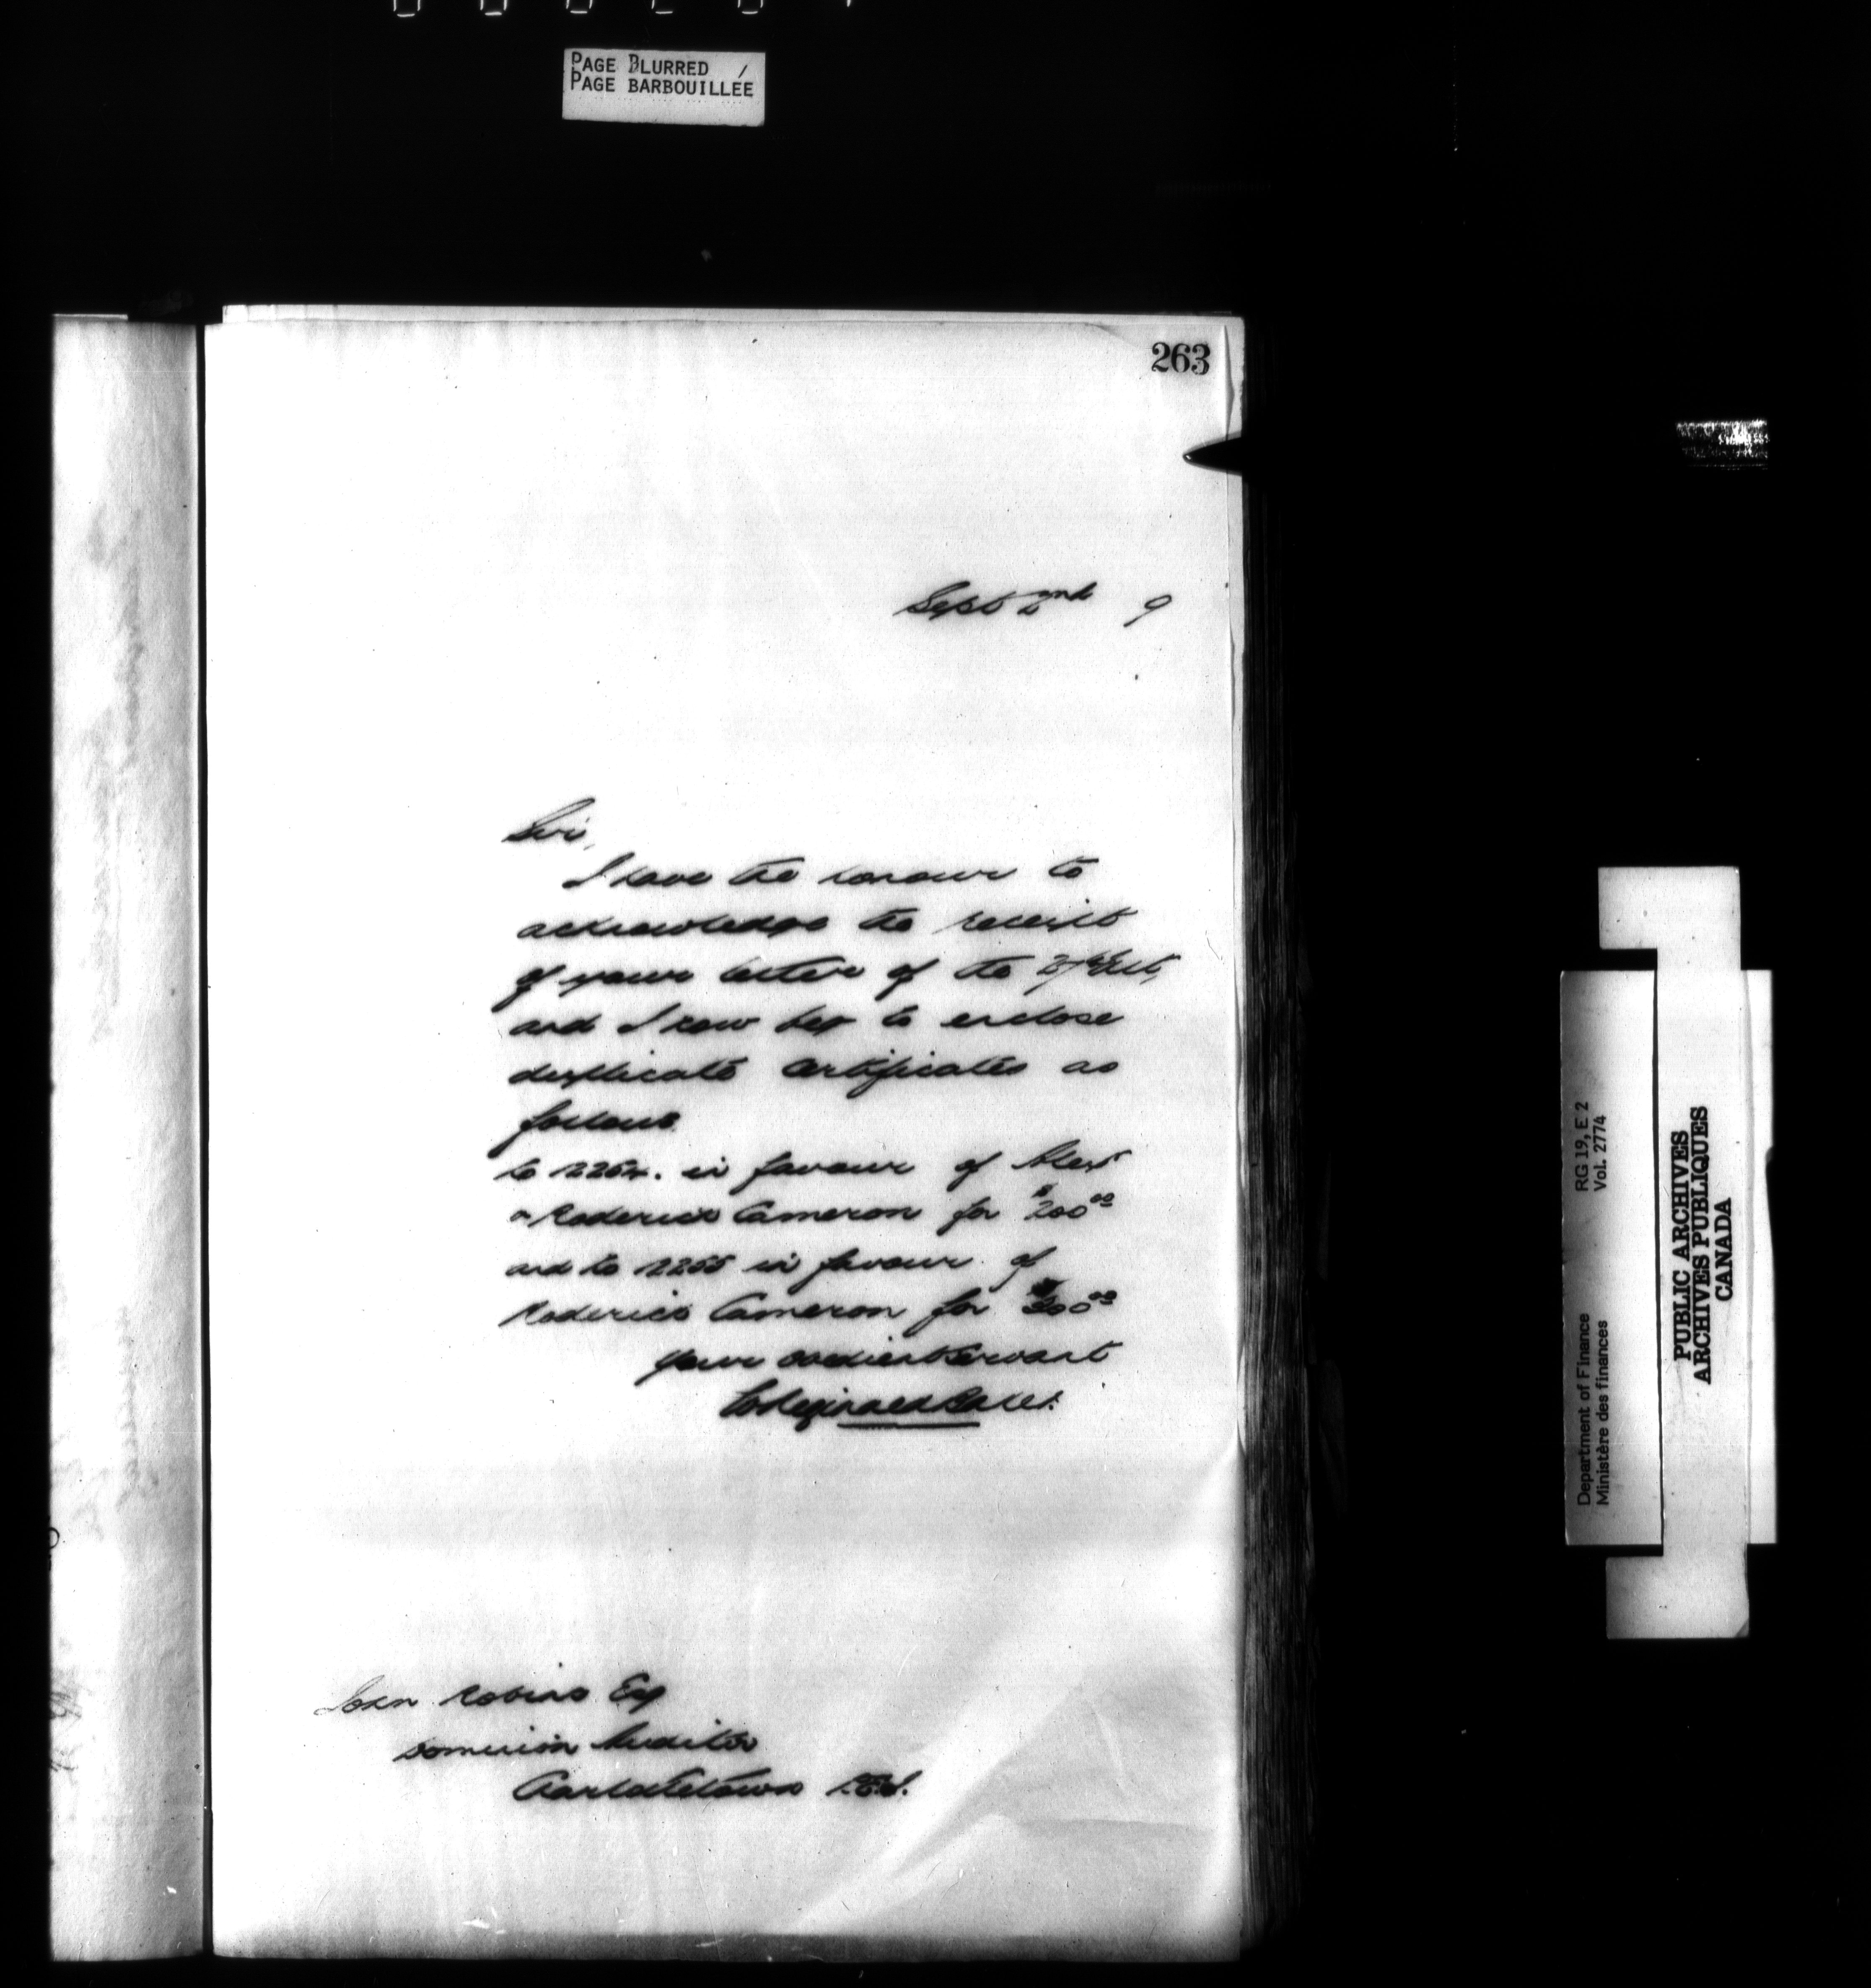 PAGE BLURRED
PAGE BARBOUILLÉE
263
Sept 2nd 9
Sir,
I have the honour to
acknowledge the receipt
of your letter of the 27th Ult,
and I now beg to enclose
duplicate Certificates as
follows
No 2254. in favour of Alexr
& Roderick Cameron for $200.00
and No 2255 in favour of
Roderick Cameron for $300.00
Your obedient Servant
Reginald Baker
John Robins Esq
Dominion Auditor
Charlottetown P.E.I.
Department of Finance RG 19, E 2
Ministère des finances Vol. 2774
PUBLIC ARCHIVES
ARCHIVES PUBLIQUES
CANADA